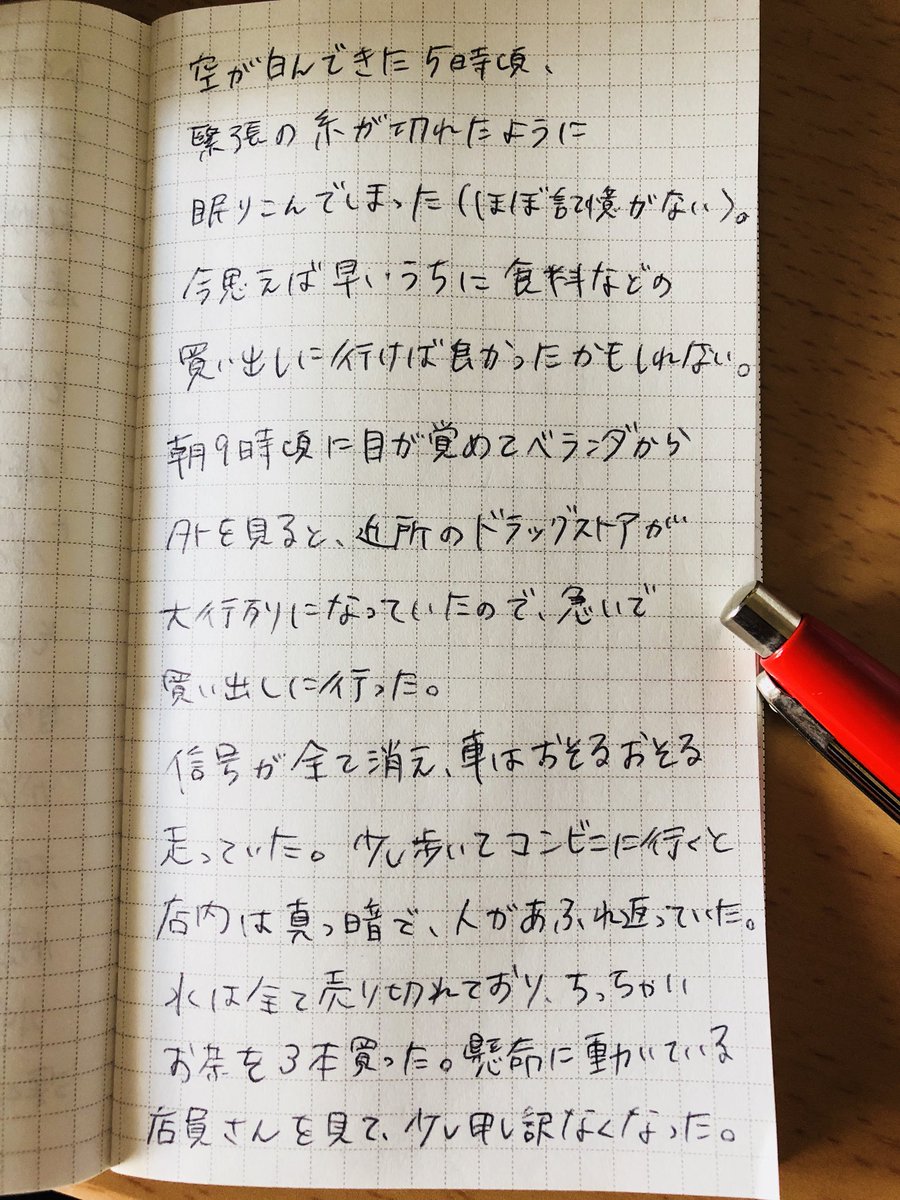 空が白んできた5時頃、
緊張の糸が切れたように
眠りこんでしまった(ほぼ記憶がない)。
今思えば早いうちに食料などの
買い出しに行けば良かったかもしれない。
朝9時頃に目が覚めてベランダから
外を見ると、近所のドラッグストアが
大行列になっていたので、急いで
買い出しに行った。
信号が全て消え、車はおそるおそる
走っていた。少し歩いてコンビニに行くと
店内は真っ暗で、人があふれ返っていた。
水は全て売り切れており、ちっちゃい
お茶を3本買った。懸命に動いている
店員さんを見て、少し申し訳なくなった。